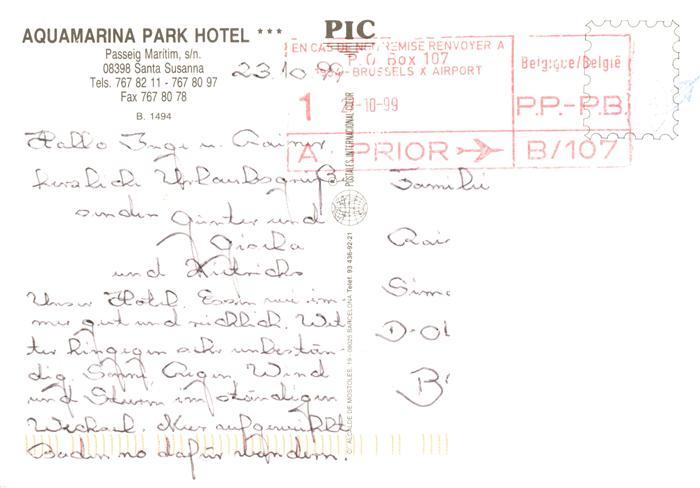 AQUAMARINA PARK HOTEL ***
Passeig Marítim, s/n.
08398 Santa Susanna
Tels. 767 82 11 - 767 80 97
Fax 767 80 78
B. 1494
PIC
EN CAS DE NON REMISE RENVOYER A
P.O. Box 107
BRUSSELS X AIRPORT
Belgique/België
1
-10-99
P.P.-P.B.
A PRIOR
B/107
23.10.99
Hallo Inge u. Rainer,
herzliche Urlaubsgrüße
senden Günter und
Gisela
und
Unser Hotel, Essen wie im
mer gut und reichlich. Wet
ter hingegen sehr unbestän
dig. Sonne, Regen, Wind
und Sturm im ständigen
Wechsel. Meer aufgewühlt
Baden no dafür wandern.
Familie
Rai
Sim
D-01
B
POSTALES INTERNACIONAL COLOR
C/. ALCALDE DE MOSTOLES, 19 - 08025 BARCELONA Telef. 93 436-92-21